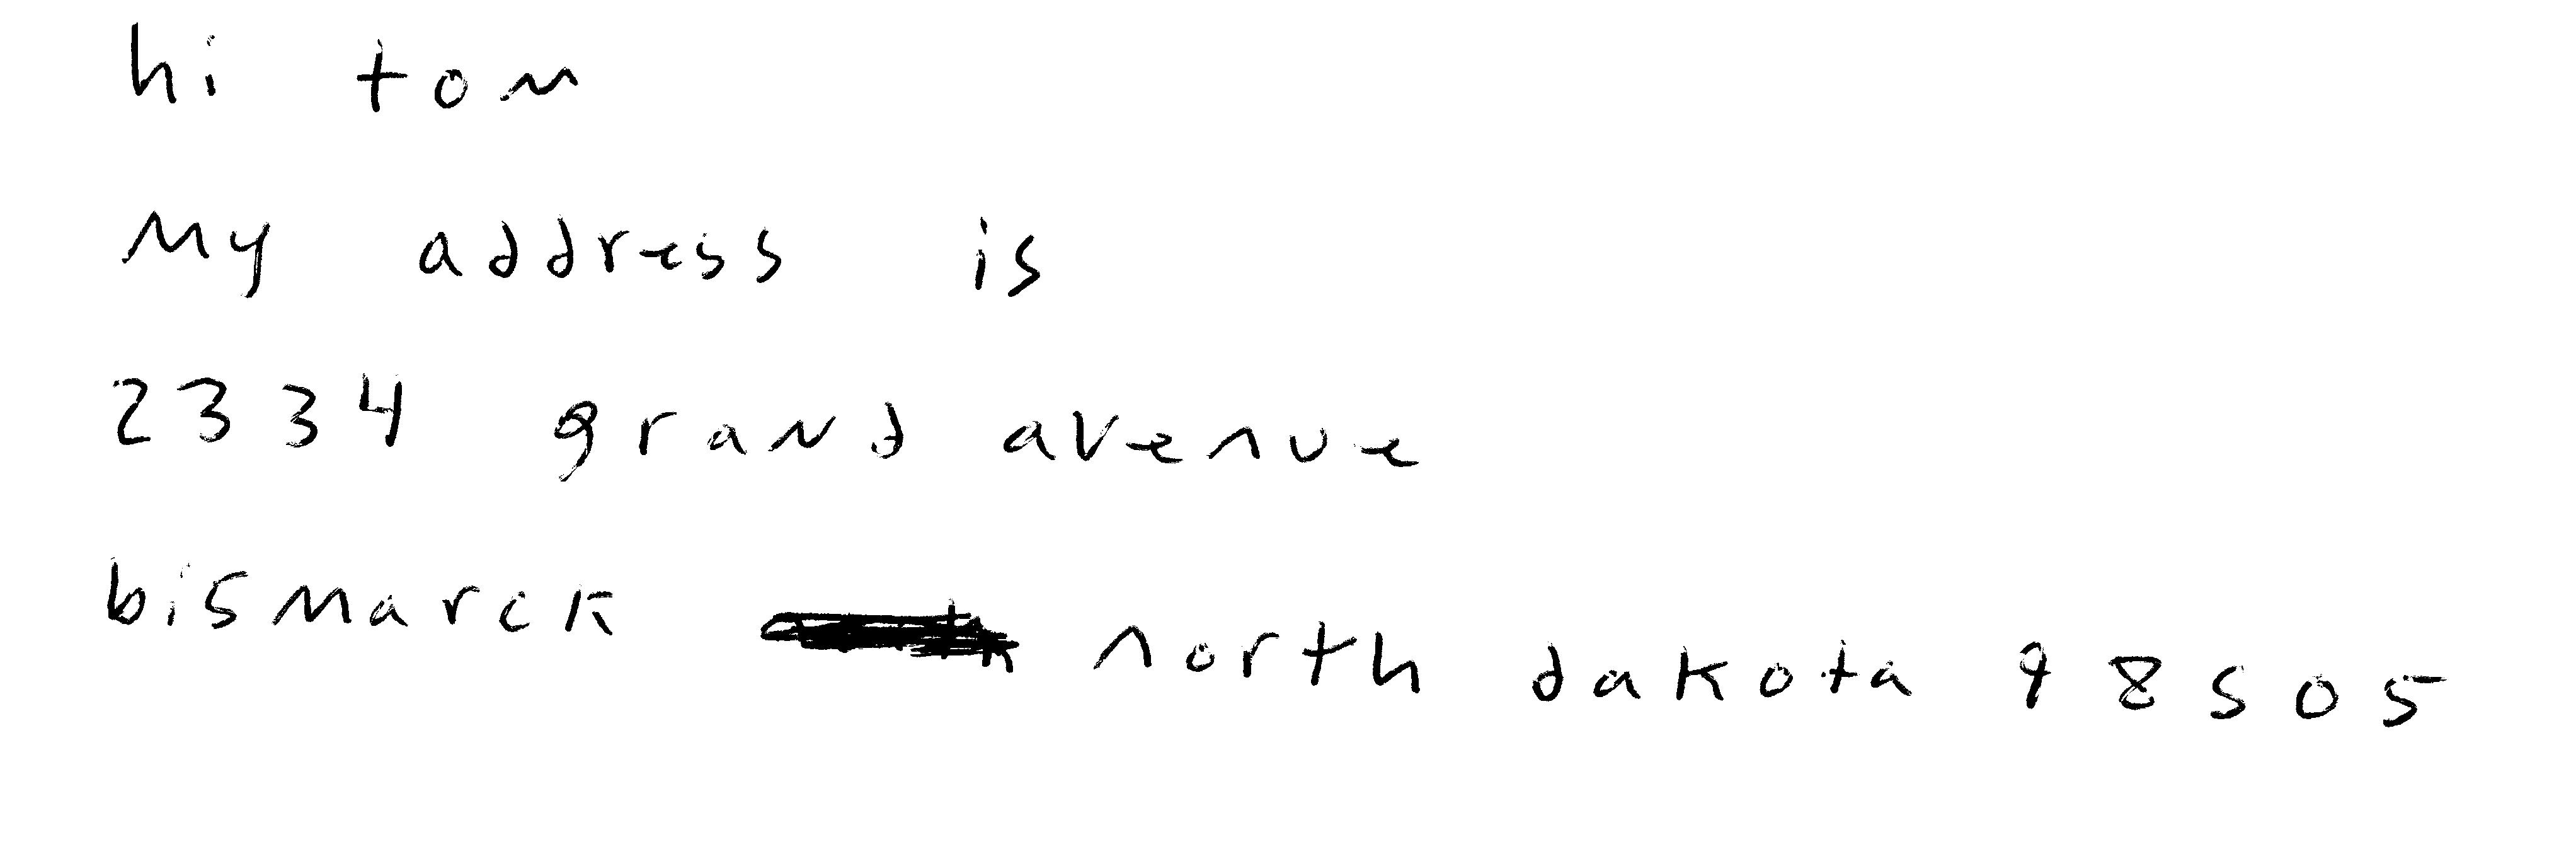 hi tom
My address is
2334 grand avenue
bismarck north dakota 98505